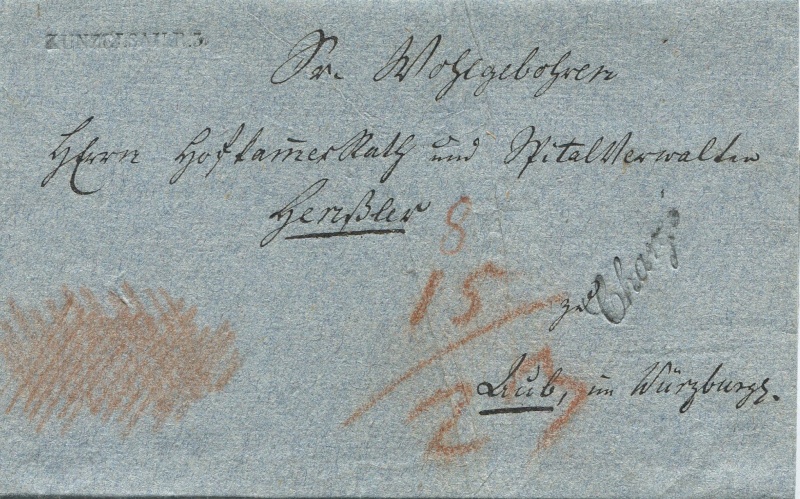 KÜNZELSAU R.3.
Sr. Wohlgebohren
Herrn Hofkam̅erRath und SpitalVerwalter
Henßler
8
15
zu
Charg.
Aub, im Würzburg.
23